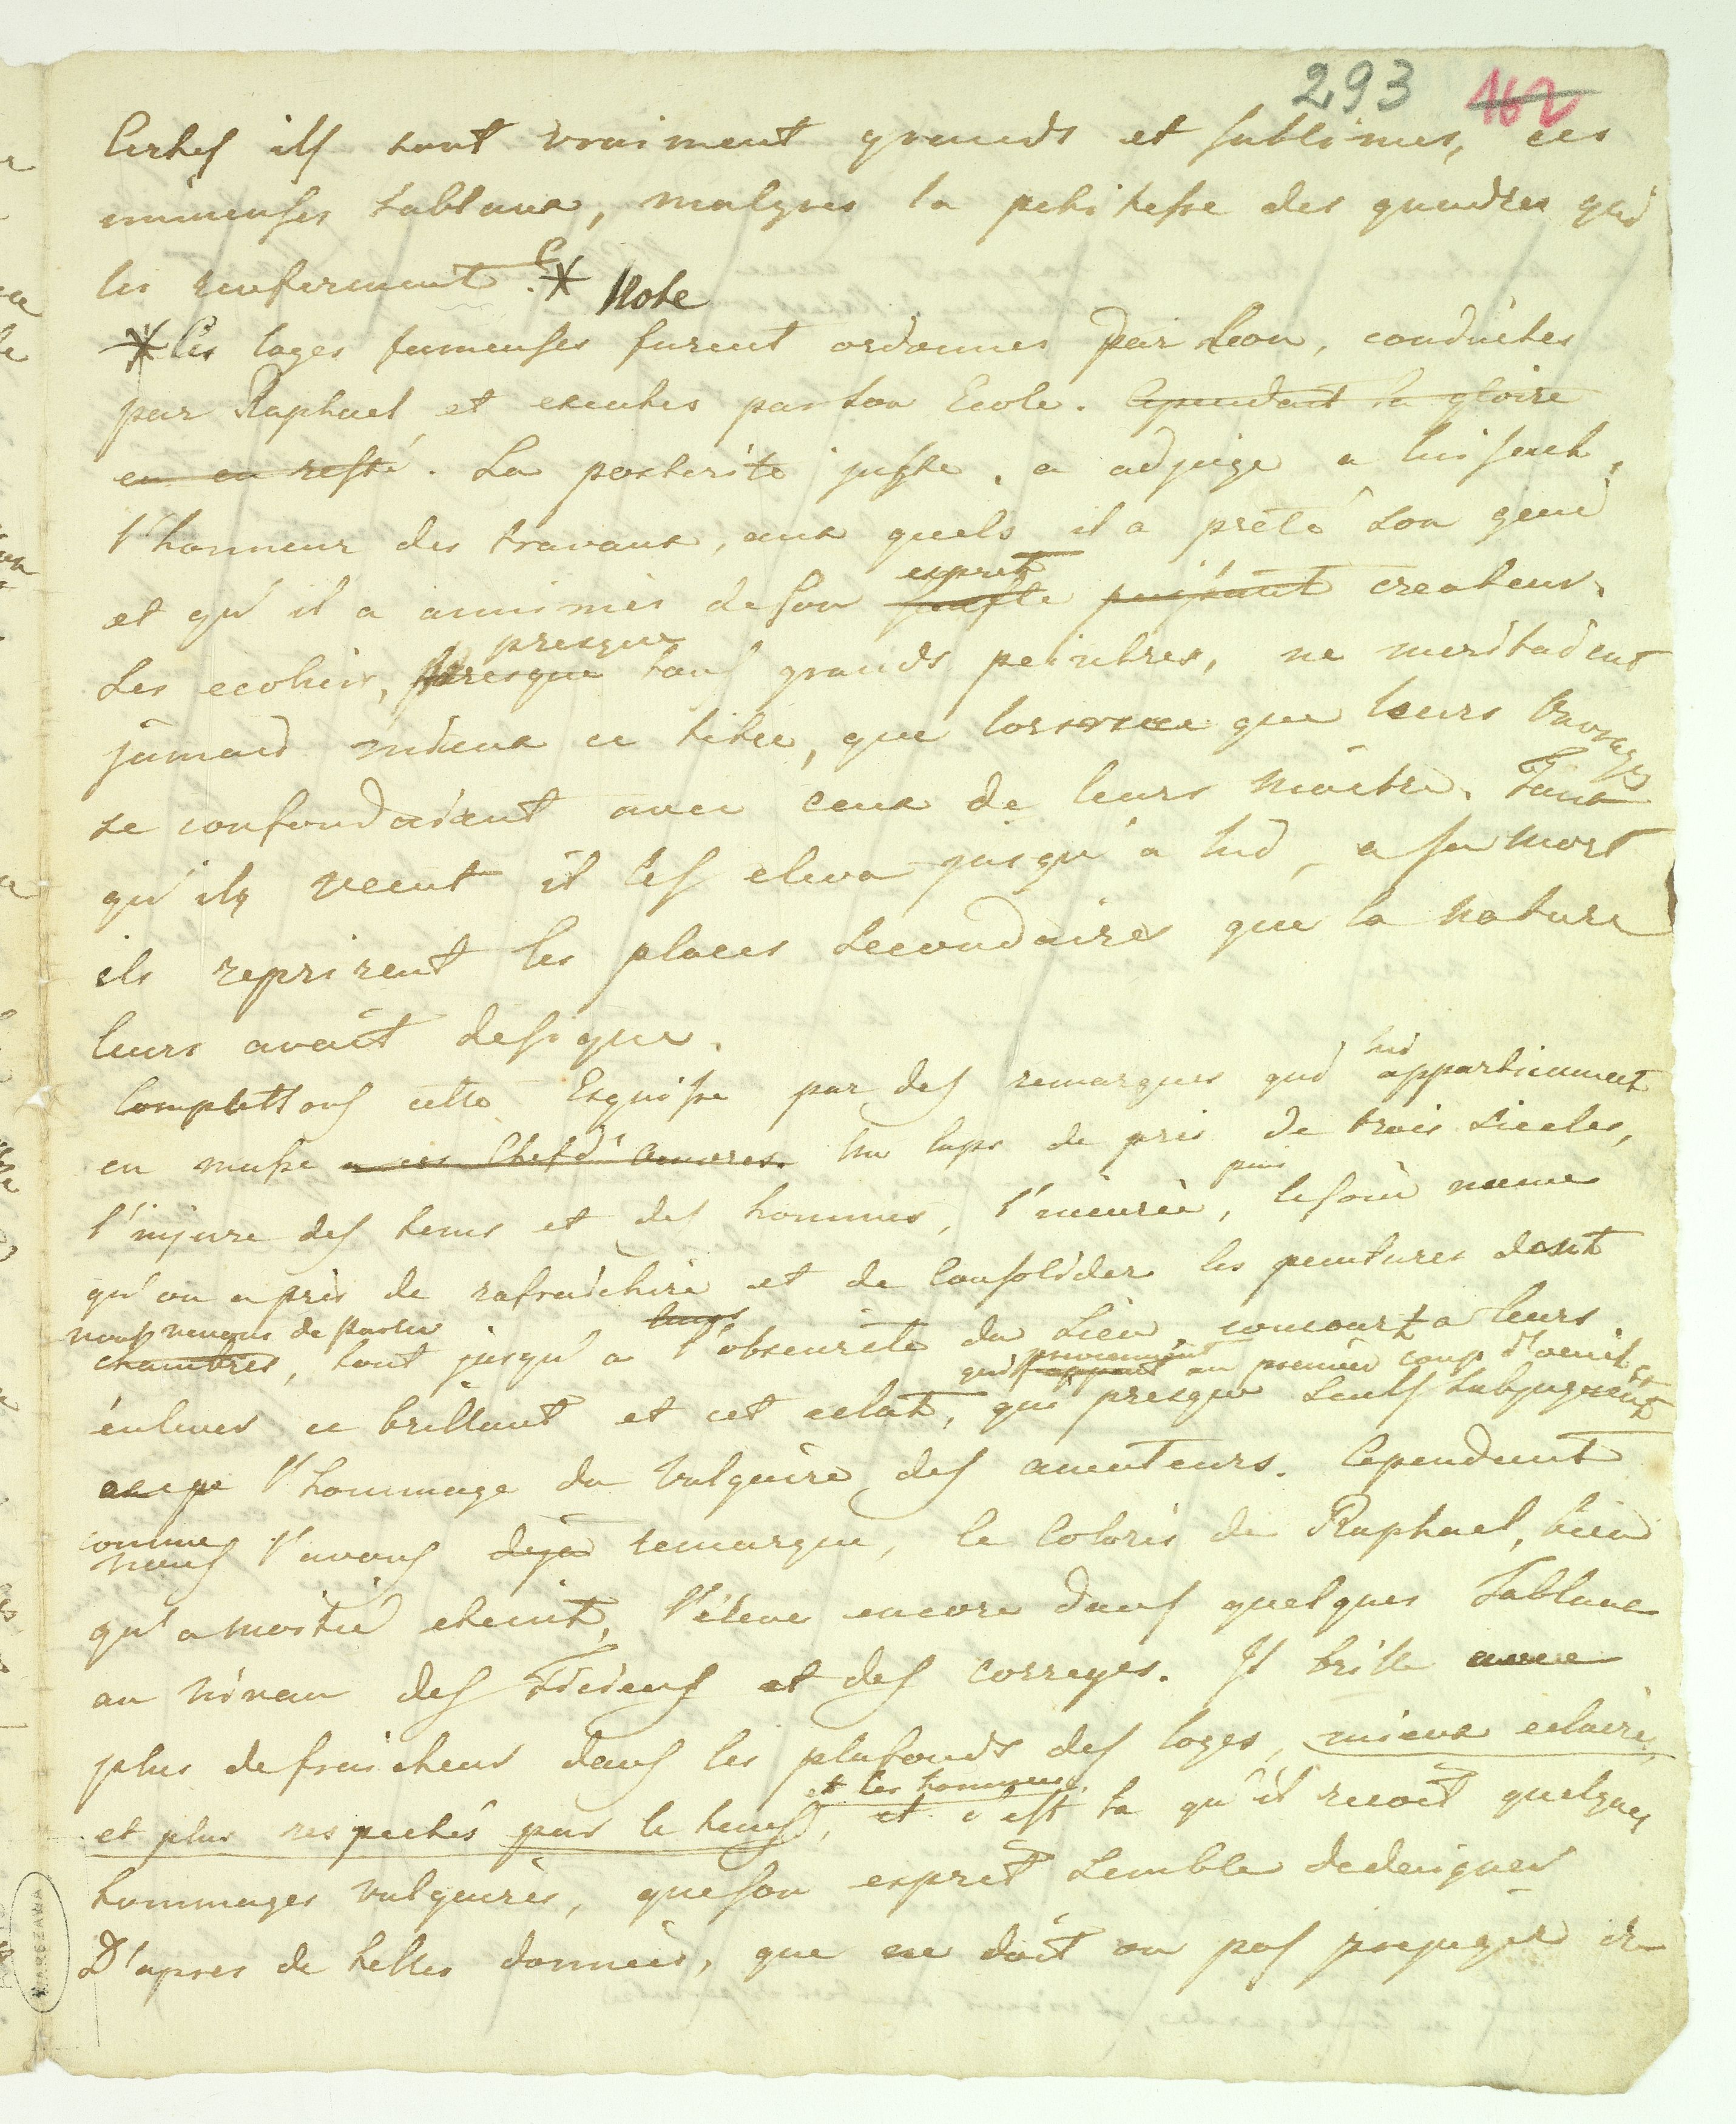 293 162
Certes ils sont vraiment grands et sublimes, ces
immenses tableaux, malgres la petitesse des quadres qui
les renferment. * Note
* Ces loges fameuses furent ordonnes par Leon, conduites
par Raphael et executes par son Ecole. Cependant la gloire
en en resté. La posterite juste, a adjuge a lui seul,
l'honneur des travaux, aux quels il a prêté son geni
et qu'il a animés de son souffle puissant createur.
esprit
Les ecoliers, presque tous grands peintres, ne meritaient
presque
jamais mieux ce titre, que lorsque que leurs ouvrages
se confondaient avec ceux de leurs maitre. Tant
qu'ils vecut il les eleva jusqu'a lui, a sa mort
ils reprirent les places secondaires que la nature
leurs avait designe.
Complettons cette Esquisse par des remarques qui appartiennent
lui
en masse a ces Chefd'oeuvres. Un laps de pres de trois siecles,
l'injure des tems et des hommes, l'incurie, le soin meme
puis
qu'on a pris de rafraichire et de consolider les peintures dont
nous venons de parler
chambres, tout jusqu'a l'obscurite du Lieu, concourt a leurs
leurs
enlever ce brillant et cet eclat, qui presque seuls subjuguent
qui frappent au premier coup d'oeuil et
l'hommage du vulgaire des amateurs. Cependant
comme
nous l'avons deja remarque, le coloris de Raphael, bien
qu'a moitié eteint, l'éleve encore dans quelques Tableaux
au niveau des Titiens et des correges. Il brille avec
plus de fraicheur dans les plafonds des loges, mieux eclairés,
et plus respectés par le tems, et c'est la qu'il recoit quelques
et les hommes
hommages vulgaires, que son esprit semble dedeigner
D'apres de telles données, que ne doit on pas prejuger de
WARSZAWA